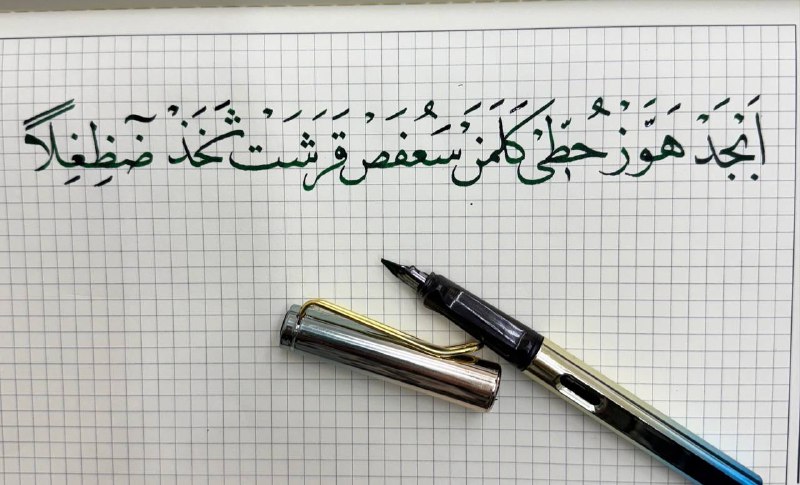 اَبْجَدْ هَوَّزْ حُطِّىْ كَلَمَنْ سَعْفَصْ قَرَشَتْ ثَخَذْ ضَظِغِلاً